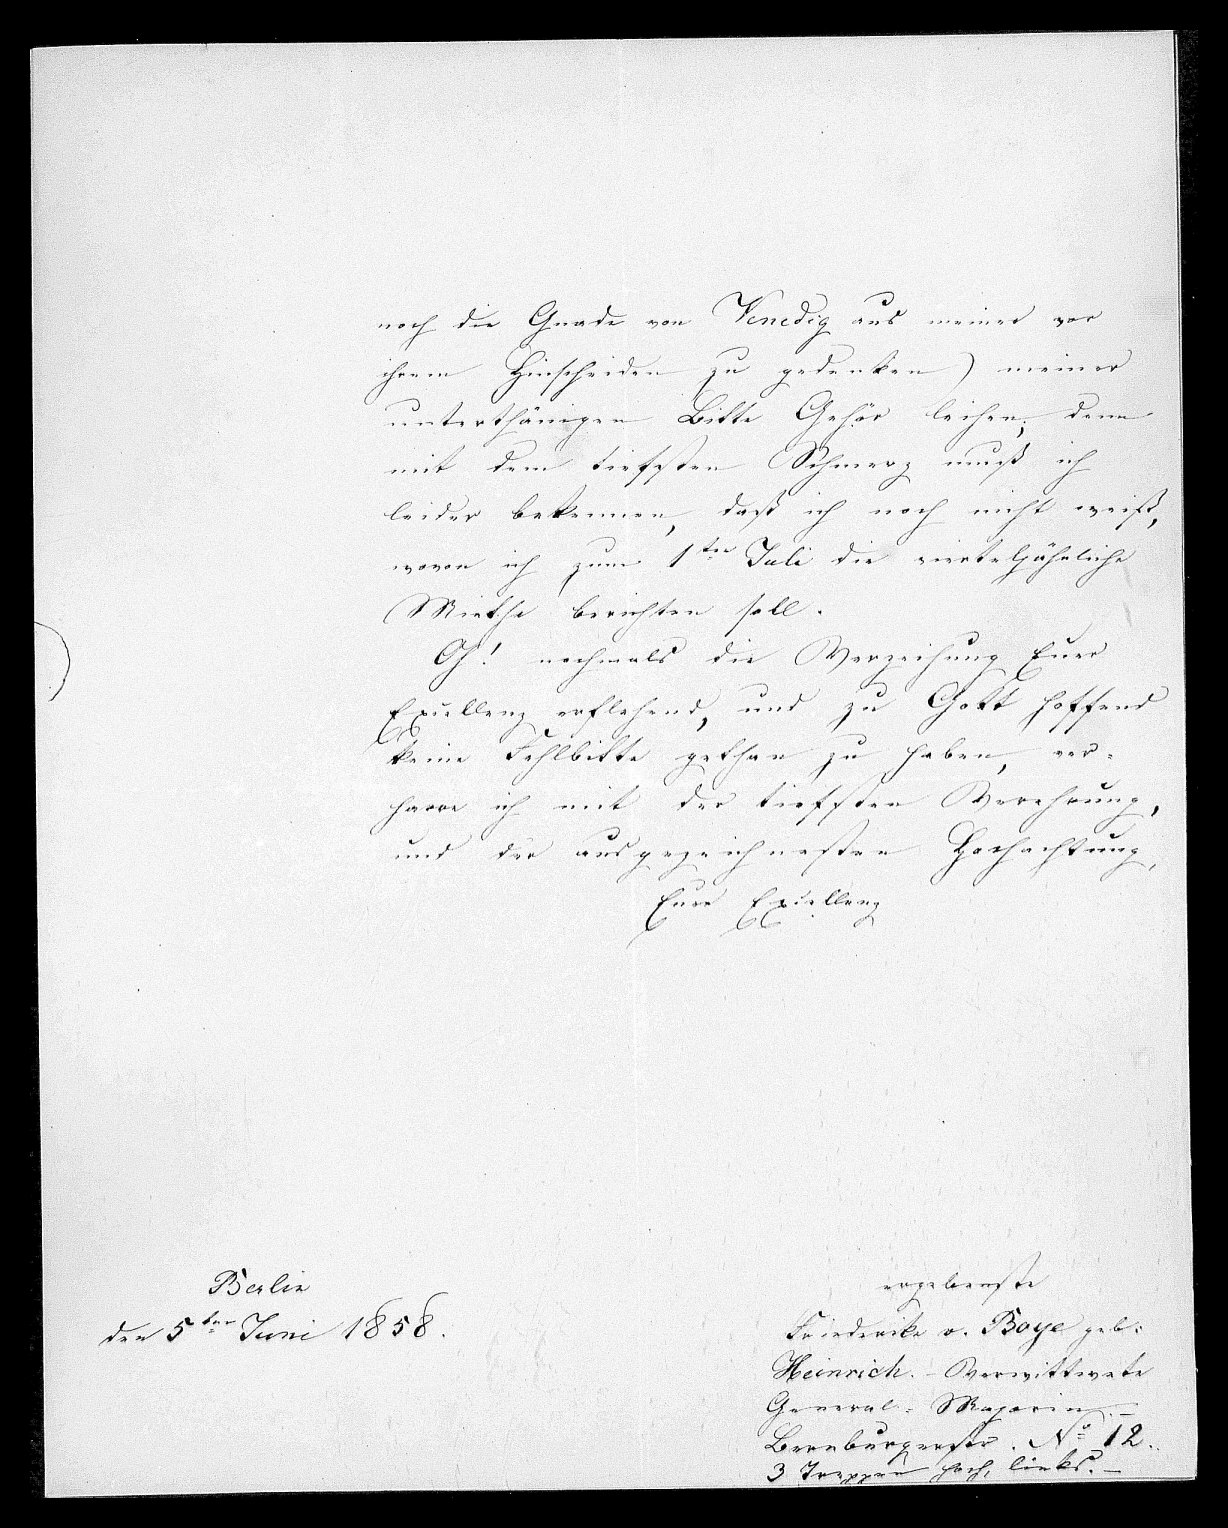 noch die Gnade von Venedig aus meiner vor
ihrem Hinscheiden zu gedenken) meiner
unterthänigen Bitte Gehör leihen, denn
mit dem tiefsten Schmerz muß ich
leider bekennen, daß ich noch nicht weiß,
wovon ich zum 1ten Juli die vierteljährliche
Miethe berichten soll.
O! nochmals die Verzeihung Euer
Exiellenz erflehend, und zu Gott hoffend
keine Fehlbitte gethan zu haben, ver-
harre ich mit der tiefsten Verehrung,
und der ausgezeichnesten Hochachtung,
Eurer Exiellenz
ergebenste
Berlin
den 5ten Juni 1858.
Friederike v. Boye geb:
Heinrich. - Verwittwete
General-Majorin. -
Bernburgerstr. No 12.
3 Treppen hoch, links. -